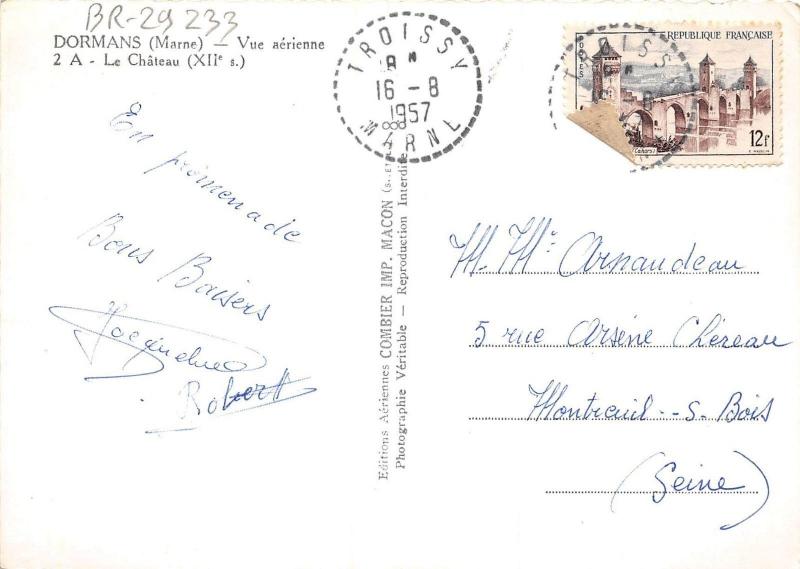 BR-29 233
DORMANS (Marne) — Vue aérienne
2 A - Le Château (XIIe s.)
TROISSY
16-8
1957
MARNE
RÉPUBLIQUE FRANÇAISE
POSTES
(Cahors)
12f
En promenade
Bons Baisers
Jacqueline
Robert
Editions Aériennes COMBIER IMP. MACON
Photographie Véritable — Reproduction Interdite
M. Me Arnaudeau
5 rue Arsène Chéreau
Montreuil - s - Bois
(Seine)